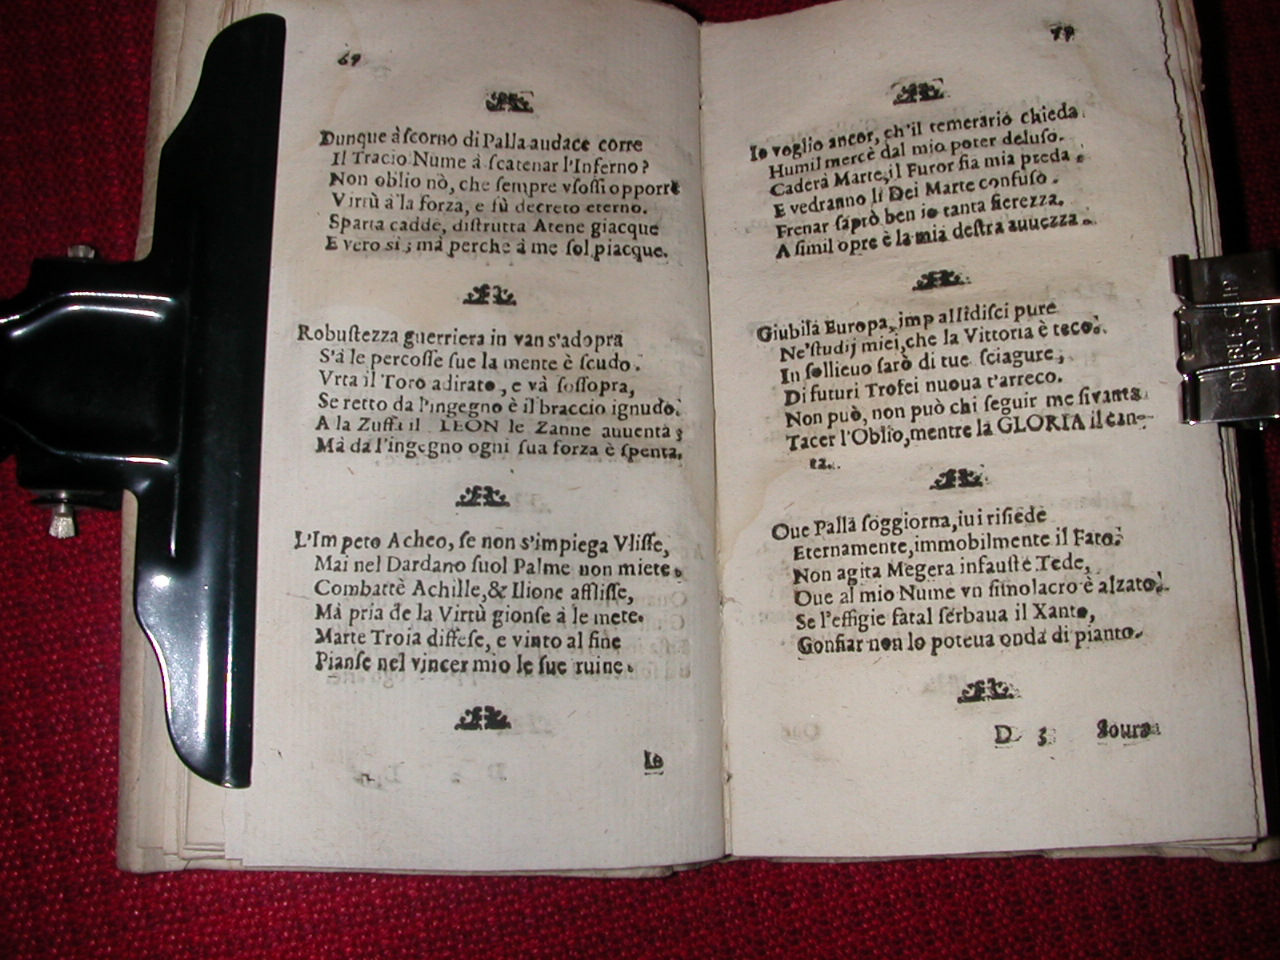 69
Dunque à ſcorno di Palla audace corre
Il Tracio Nume à ſcatenar l'Inferno?
Non oblio nò, che ſempre vſoſſi opporre
Virtù à la forza, e fù decreto eterno.
Sparta cadde, diſtrutta Atene giacque
E vero sì; mà perche à me ſol piacque.
Robuſtezza guerriera in van s'adopra
S'à le percoſſe ſue la mente è ſcudo.
Vrta il Toro adirato, e và ſoſſopra,
Se retto da l'ingegno è il braccio ignudo.
A la Zuffa il LEON le Zanne auuenta;
Mà da l'ingegno ogni ſua forza è ſpenta.
L'Impeto Acheo, ſe non s'impiega Vliſſe,
Mai nel Dardano ſuol Palme non miete.
Combattè Achille, & Ilione affliſſe,
Mà pria de la Virtù gionſe à le mete.
Marte Troia diffeſe, e vinto al fine
Pianſe nel vincer mio le ſue ruine.
Io
Io voglio ancor, ch'il temerario chieda
Humil mercè dal mio poter deluſo.
Caderà Marte, il Furor fia mia preda.
E vedranno li Dei Marte confuſo.
Frenar ſaprò ben io tanta fierezza.
A ſimil opre è la mia deſtra auuezza.
Giubila Europa, impallidiſci pure
Ne'ſtudij miei, che la Vittoria è teco.
In ſollieuo ſarò di tue ſciagure,
Di futuri Trofei nuoua t'arreco.
Non può, non può chi ſeguir me ſi vanta
Tacer l'Oblio, mentre la GLORIA il can-
ta.
Oue Palla ſoggiorna, iui riſiede
Eternamente, immobilmente il Fato.
Non agita Megera infauſte Tede,
Oue al mio Nume vn ſimolacro è alzato.
Se l'effigie fatal ſerbaua il Xanto,
Gonfiar non lo poteua onda di pianto.
D 3 Soura